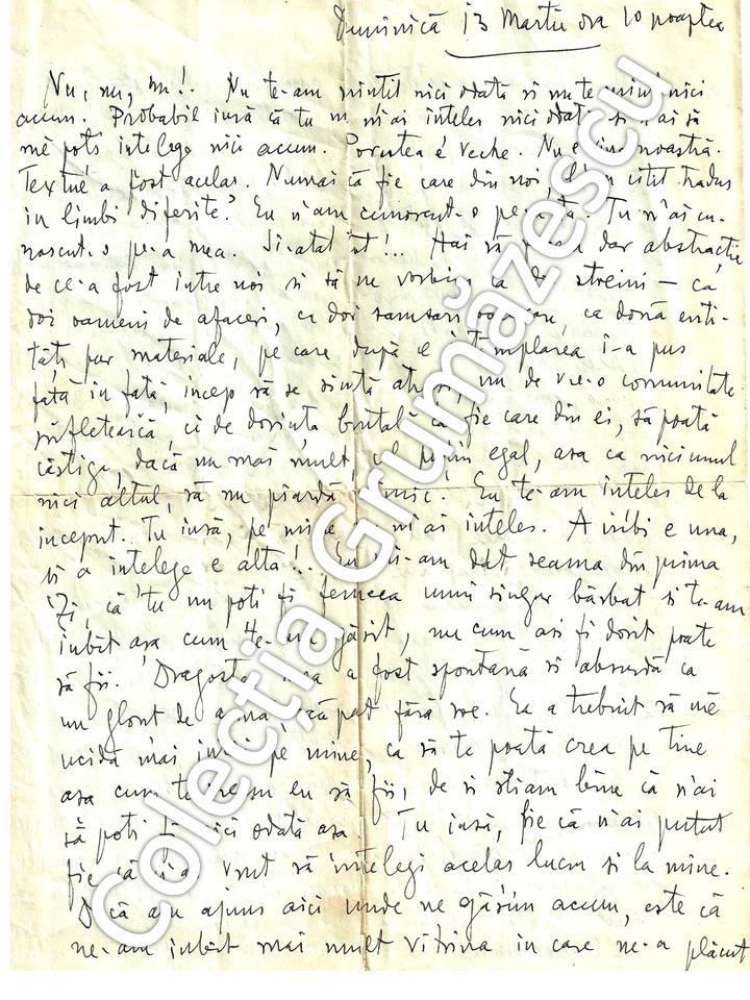 Duminică 13 Martie ora 10 noaptea
Nu, nu, nu!. Nu te-am mințit nici odată și nu te mint nici
acum. Probabil însă că tu nu m'ai înteles nici odată și n'ai să
mě poți intelege nici acum. Povestea e veche. Nu e a noastră.
Textul a fost acelaș. Numai că fie care din noi, l'am citit tradus
in limbi diferite? Eu n'am cunoscut-o pe a ta. Tu n'ai cu-
noscut-o pe-a mea. Și-atât!... Hai să facem dar abstracție
de ce-a fost intre noi și să ne vorbim ca doi streini — ca
doi oameni de afaceri, ca doi samsari ca două enti-
tăți pur materiale, pe care după ce întâmplarea i-a pus
față in față, incep să se simtă atrași, nu de vre-o comunitate
sufletească, ci de dorința brutală ca fie care din ei, să poată
câștiga, dacă nu mai mult, cel puțin egal, așa ca nici unul
nici altul, să nu piardă nimic. Eu te-am înteles de la
inceput. Tu însă, pe mine nu m'ai inteles. A iubi e una,
și a intelege e alta!.. Eu mi-am dat seama din prima
zi, că tu nu poți fi femeea unui singur bărbat și te-am
iubit așa cum te-am găsit, nu cum ași fi dorit poate
să fii. Dragostea mea a fost spontană și absurdă ca
un glonț de armă scăpat fără voe. Ea a trebuit să mě
ucidă mai intâi pe mine, ca să te poată crea pe tine
așa cum te vream eu să fii, de și știam bine că n'ai
să poți fi nici odată așa. Tu însă, fie că n'ai putut
fie că n'ai vrut să intelegi acelaș lucru și la mine.
Dacă am ajuns aici unde ne găsim acum, este că
ne-am iubit mai mult vitrina in care ne-a plăcut
Colecția Grumăzescu